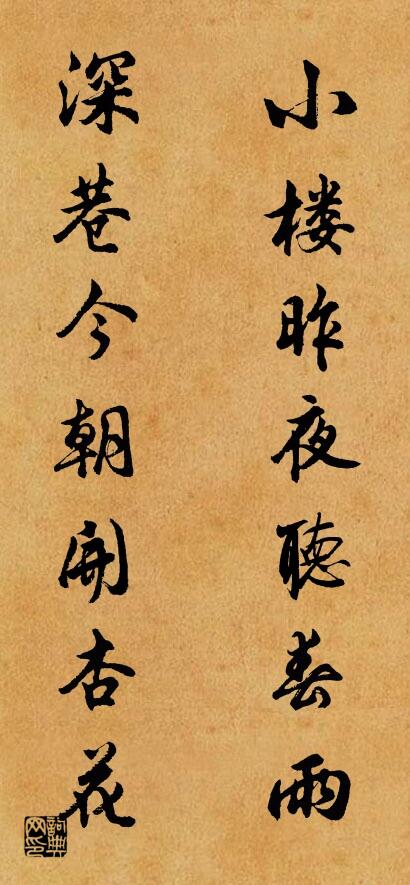 小楼昨夜聽春雨
深巷今朝開杏花
詞典网印